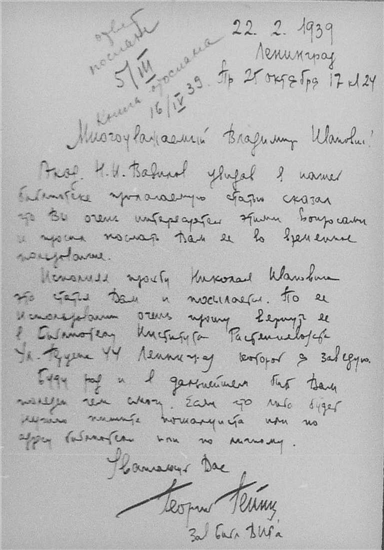 ответ
послан
5/III
Книга отослана
16/IV 39.
22. 2. 1939
Ленинград
Пр 25 октября 17 кв 24
Многоуважаемый Владимир Иванович!
Акад. Н. И. Вавилов увидав в нашей
библиотеке прилагаемую статью сказал
что Вы очень интересуетесь этими вопросами
и просил послать Вам ее во временное
пользование.
Исполняя просьбу Николая Ивановича
эту статью Вам и посылаю. По ее
использовании очень прошу вернуть ее
в библиотеку Института Растениеводства
Ул. Герцена 44 Ленинград которой я заведую.
Буду рад и в дальнейшем быть Вам
полезен чем смогу. Если что либо будет
нужно пишите пожалуйста или по
адресу библиотеки или по личному.
Уважающий Вас
Георгий Гейнц
Зав библ ВИРа